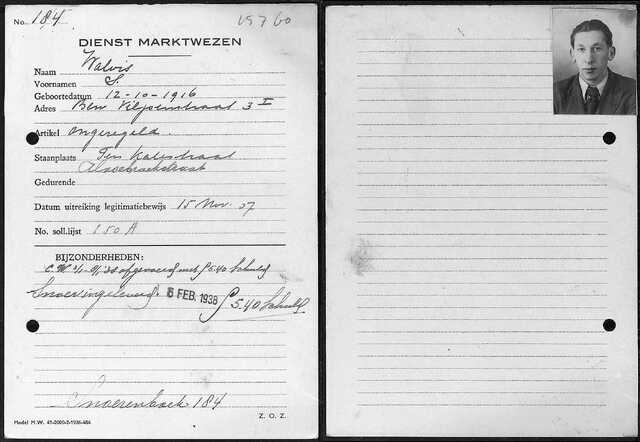 No. 184
15760
DIENST MARKTWEZEN
Naam Walvis
Voornamen S.
Geboortedatum 12-10-1916
Adres Ben Viljoenstraat 3 I
Artikel ongeregeld.
Staanplaats Ten Katestraat
Gedurende
Datum uitreiking legitimatiebewijs 15 Nov. 37
No. soll.lijst 150 A
BIJZONDERHEDEN:
afgevoerd met ƒ 5.40 schuld
6 FEB. 1938 ƒ 5.40 schuld
Snoerenboek 184
Model M.W. 41-2000-2-1936-484
Z. O. Z.